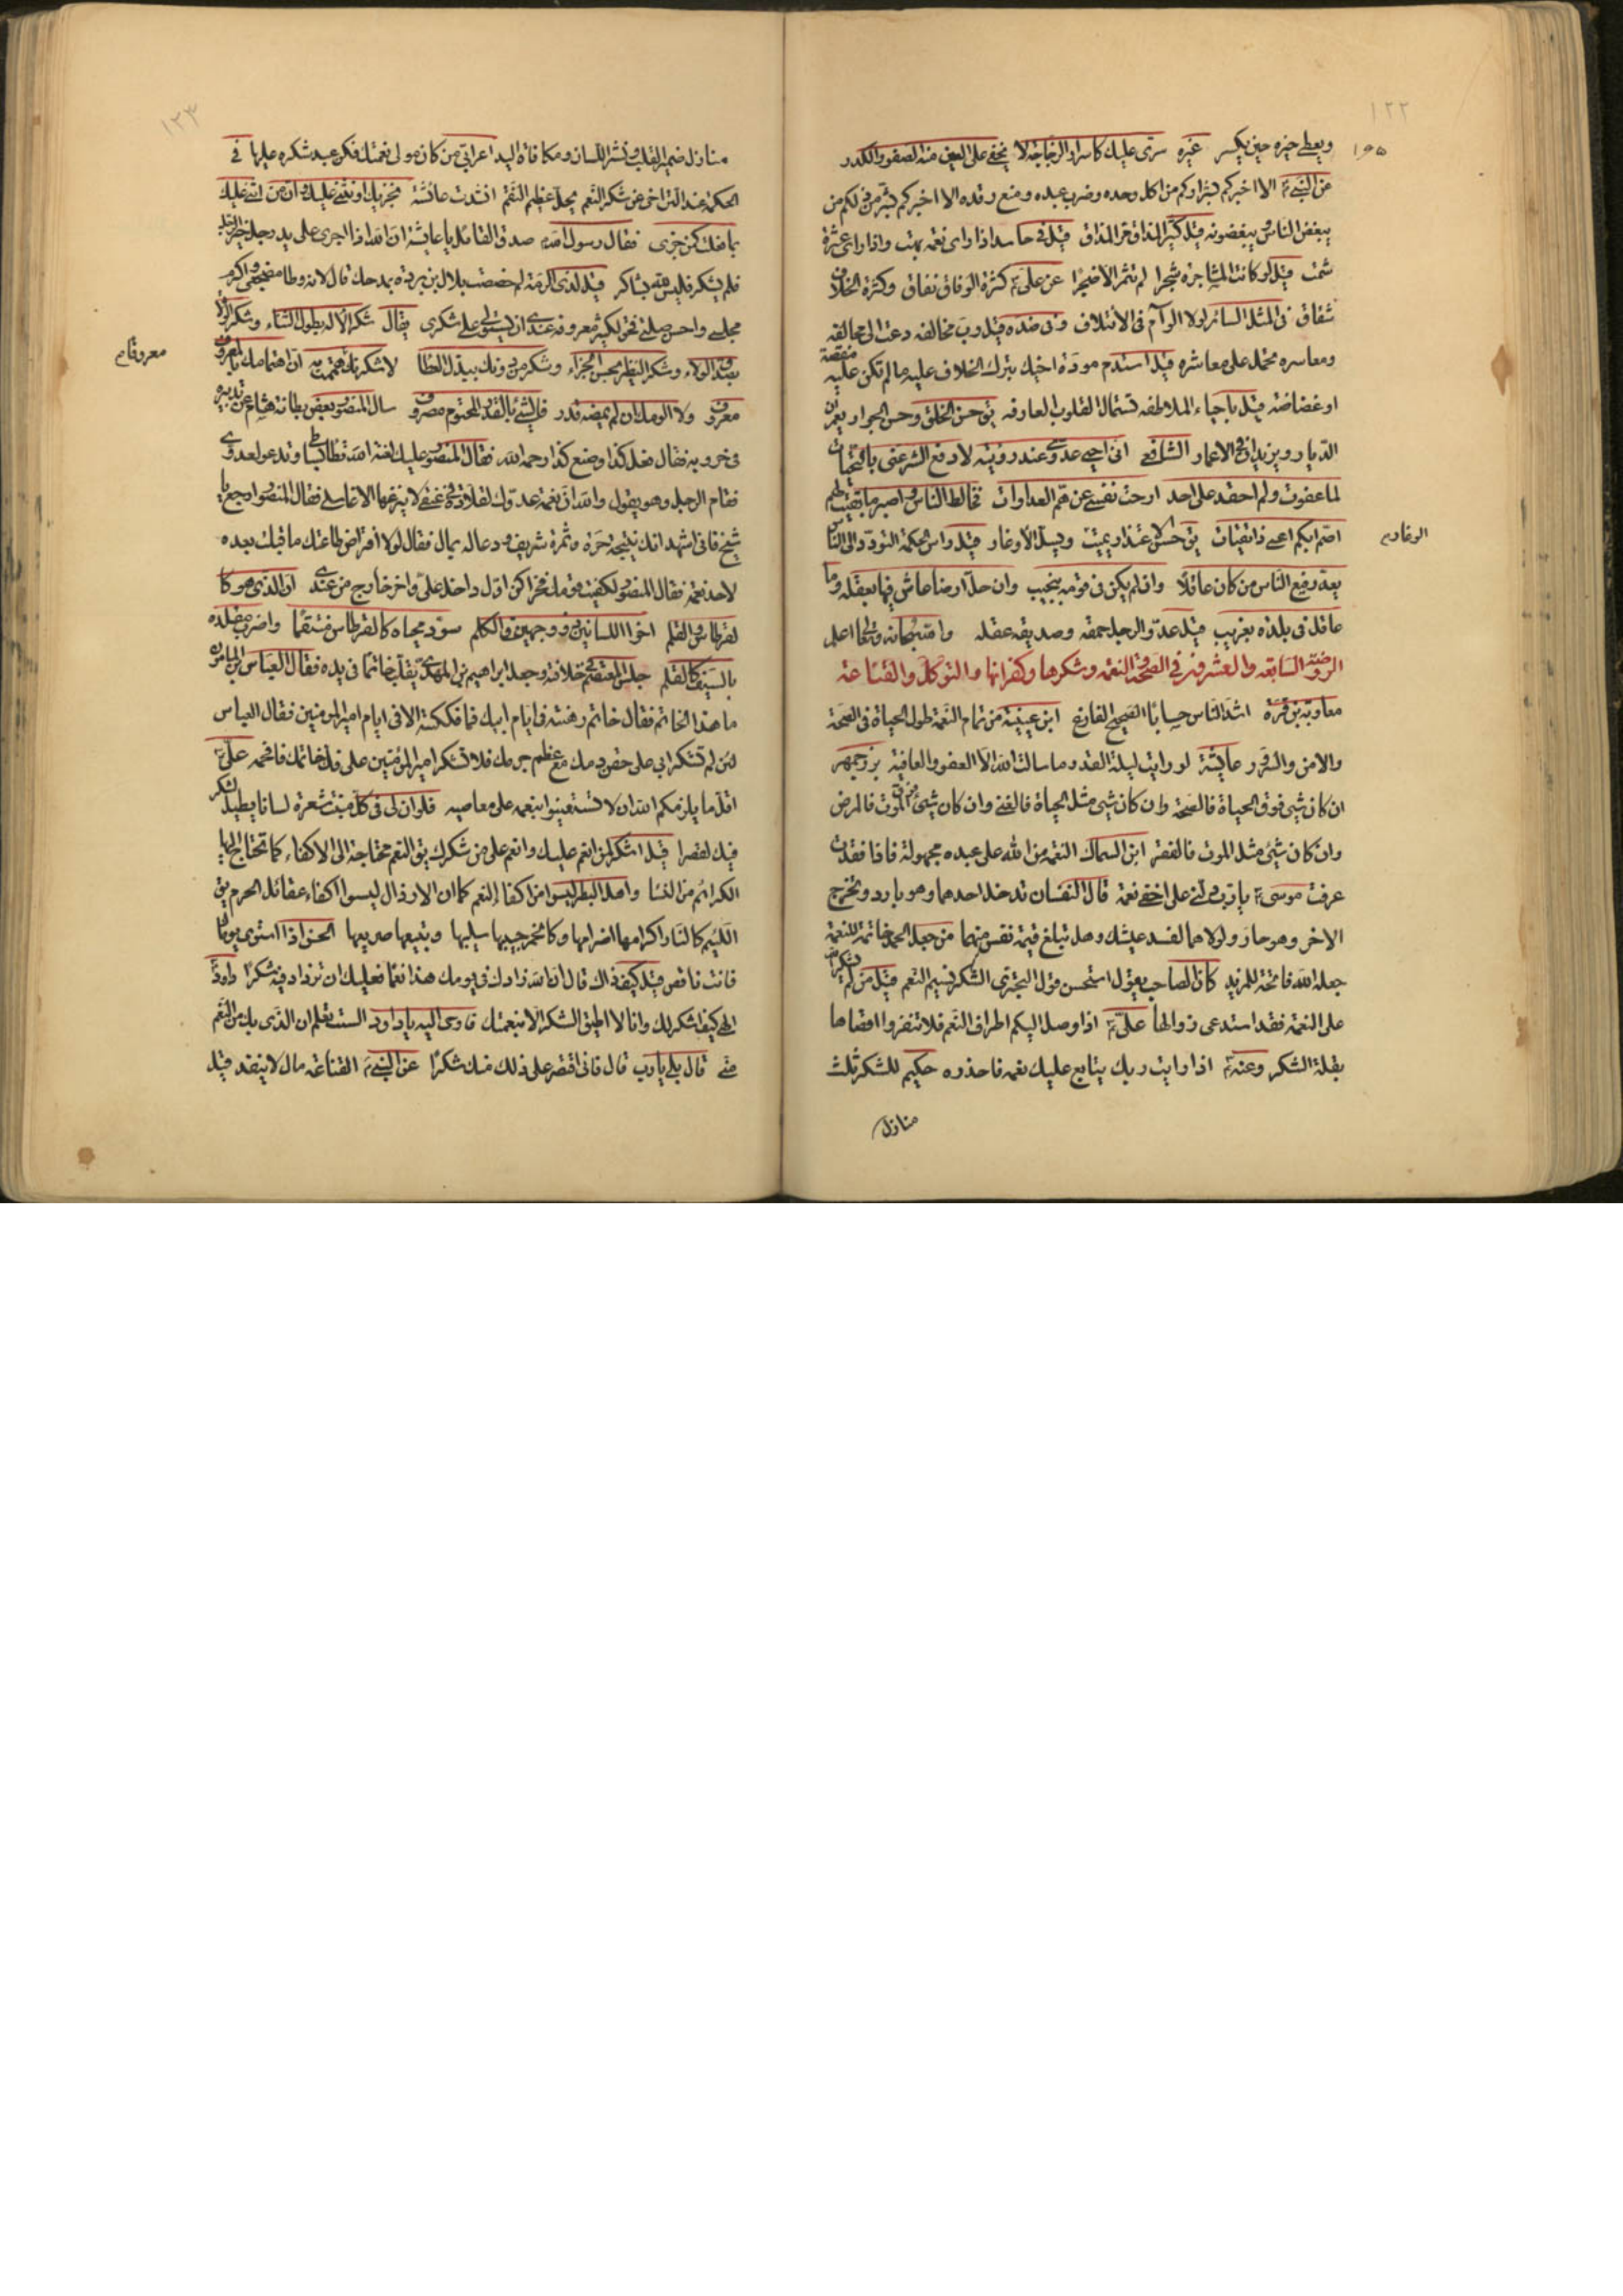 ١٢٢
ويعطى خيره حين يكسر غيره سرى عليك كاسرار الزجاجة لا يخفى على العين منه الصفو والكدر
١٥٥
عن النبي الا اخبركم بشراركم من اكل وحده وضرب عبده ومنع رفده الا اخبركم بشر من ذلكم من
يبغض الناس ويبغضونه قيل كثير المذاق مر المذاق قيل في حاسد اذا راى نعمة بهت واذا راى عثرة
شمت قيل لو كانت المشاجرة شجرا لم تثمر الا ضجرا عن علي كثرة الوفاق نفاق وكثرة الخلاف
شقاق في المثل السائر لولا الوآم في الائتلاف وفي ضده قيل رب مخالفه دعت الى مخالفه
ومعاسره تحمل على معاشره قيل استدم مودة اخيك بترك الخلاف عليه ما لم تكن عليه منقصة
او غضاضة قيل باحياء الملاطفه تستمال القلوب العارفه يق حسن الخلق وحسن الجوار يعمران
الديار ويزيدان في الاعمار الشافعي انى احيى عدوى عند رؤيته لادفع الشر عنى بالتحيات
لما عفوت ولم احقد على احد ارحت نفسى عن هم العداوات تخالط الناس واصبر ما بقيت لهم
اصم ابكم اعمى ذا تقيات يق حسن الاعتذار يميت ويسل الاوغار قيل راس الحكمة التودد الى الناس
الوغارم
يعد رفيع الناس من كان عاقلا وان لم يكن في قومه بنجيب وان حل ارضا عاش فيها بعقله وما
عاقل في بلدة بغريب قيل عدو الرجل حمقه وصديقه عقله والله سبحانه وتعالى اعلم
الروضة السابعه والعشرون في الصحة والنعمة وشكرها وكفرانها والتوكل والقناعة
معاوية بن قرة اشد الناس حسابا الصحيح الفارغ ابن عيينة من تمام النعمة طول الحياة في الصحة
والامن والسرور عايشة لو رايت ليلة القدر ما سالت الله الا العفو والعافية بزرجمهر
ان كان شئ فوق الحياة فالصحة وان كان شئ مثل الحياة فالغنى وان كان شئ فوق الموت فالمرض
وان كان شئ مثل الموت فالفقر ابن السماك النعمة من الله على عبده مجهولة فاذا فقدت
عرفت موسى يا رب دلنى على اخفى نعمة قال النفسان تدخل احدهما وهو بارد وتخرج
الاخر وهو حار ولولاهما لفسد عيشك وهل تبلغ قيمة نفس منهما من جعل الحمد خاتمة للنعمة
جعله الله فاتحة للمزيد كان الصاحب يقول استحسن قول البحترى الشكر نسيم النعم قيل من لم يشكر
على النعمة فقد استدعى زوالها علي اذا وصل اليكم اطراف النعم فلا تنفروا اقصاها
بقلة الشكر وعنه اذا رايت ربك يتابع عليك نعمه فاحذره حكيم للشكر ثلث
منازل
١٢٣
منازل ضمير القلب ونشر اللسان ومكافاة اليد اعرابي من كان مولى نعمتك فكن عبد شكره عليها في
الحكمة عند التراخى عن شكر النعم يحل عظيم النقم انشدت عائشة يجزيك او يثنى عليك وان من اثنى عليك
بما فعلت كمن جزى فقال رسول الله صدق القائل يا عائشة ان الله اذا اجرى على يد رجل خيرا
فلم يشكر فليس لله بشاكر قيل لذى الرمة لم خصصت بلال بن بردة بمدحك قال لانه وطا مضجعى واكرم
مجلسى واحسن صلتى فحق لكثير معروفه عندى ان يستولى على شكرى يقال شكر الاله بطول الثناء وشكر الولاة
بصدق الولاء وشكر النظير بحسن الجزاء وشكر من دونك ببذل العطا لاشكرنك معروفا هممت به ان اهتمامك بالمعروف
معروفام
معروف ولا الومك ان لم يمضه قدر فالشئ بالقدر المحتوم مصروف سال المنصور بعض بطانة هشام عن تدبيره
في حروبه فقال فعل كذا وصنع كذا رحمه الله فقال المنصور عليك لعنة الله تطا بساطي وتدعو لعدوى
فقام الرجل وهو يقول والله ان نعمة عدوك لقلادة في عنقى لا ينزعها الا غاسلى فقال المنصور ارجع يا
شيخ فانى اشهد انك نتيجة حرة وثمرة شريف ودعا له بمال فقال لولا افتراض طاعتك ما قبلت بعده
لاحد نعمة فقال المنصور لكفيت قومك فخرا كن اول داخل على واخر خارج من عندى ان الذى هو كا
لقرطاس والقلم اخو اللسانين ذو وجهين والكلم سود محياه كالقرطاس منتقما واضرب مقلده
بالسيف كالقلم جلس المعتصم في خلافته وجعل ابراهيم بن المهدي يقلب خاتما في يده فقال العباس بن المامون
ما هذا الخاتم فقال خاتم رهنته في ايام ابيك فما فككته الا في ايام امير المومنين فقال العباس
لئن لم تشكر ابي على حقن دمك مع عظم جرمك فلا تشكر امير المؤمنين على فك خاتمك فافحمه علي
اقل ما يلزمكم الله ان لا تستعينوا بنعمه على معاصيه فلو ان لى في كل منبت شعرة لسانا يطيل الشكر
فيك لقصرا قيل اشكر لمن انعم عليك وانعم على من شكرك يق النعم محتاجة الى الاكفاء كما تحتاج اليها
الكرائم من النسا واهل البطر ليسوا من اكفاء النعم كما ان الارذال ليسوا اكفاء عقائل الحرم يق
اللئيم كالنار اكرامها اضرامها وكالخمر حبيبها سليبها وتبيعها صريعها الحسن اذا استوى يوماك
فانت ناقص قيل كيف ذاك قال ان الله زادك في يومك هذا نعما فعليك ان تزداد فيه شكرا داود
الهى كيف اشكر لك وانا لا اطيق الشكر الا بنعمتك فاوحى اليه يا داود الست تعلم ان الذى بك من النعم
منى قال بلى يا رب قال فانى اقتصر على ذلك منك شكرا عن النبي القناعة مال لا ينفد قيل